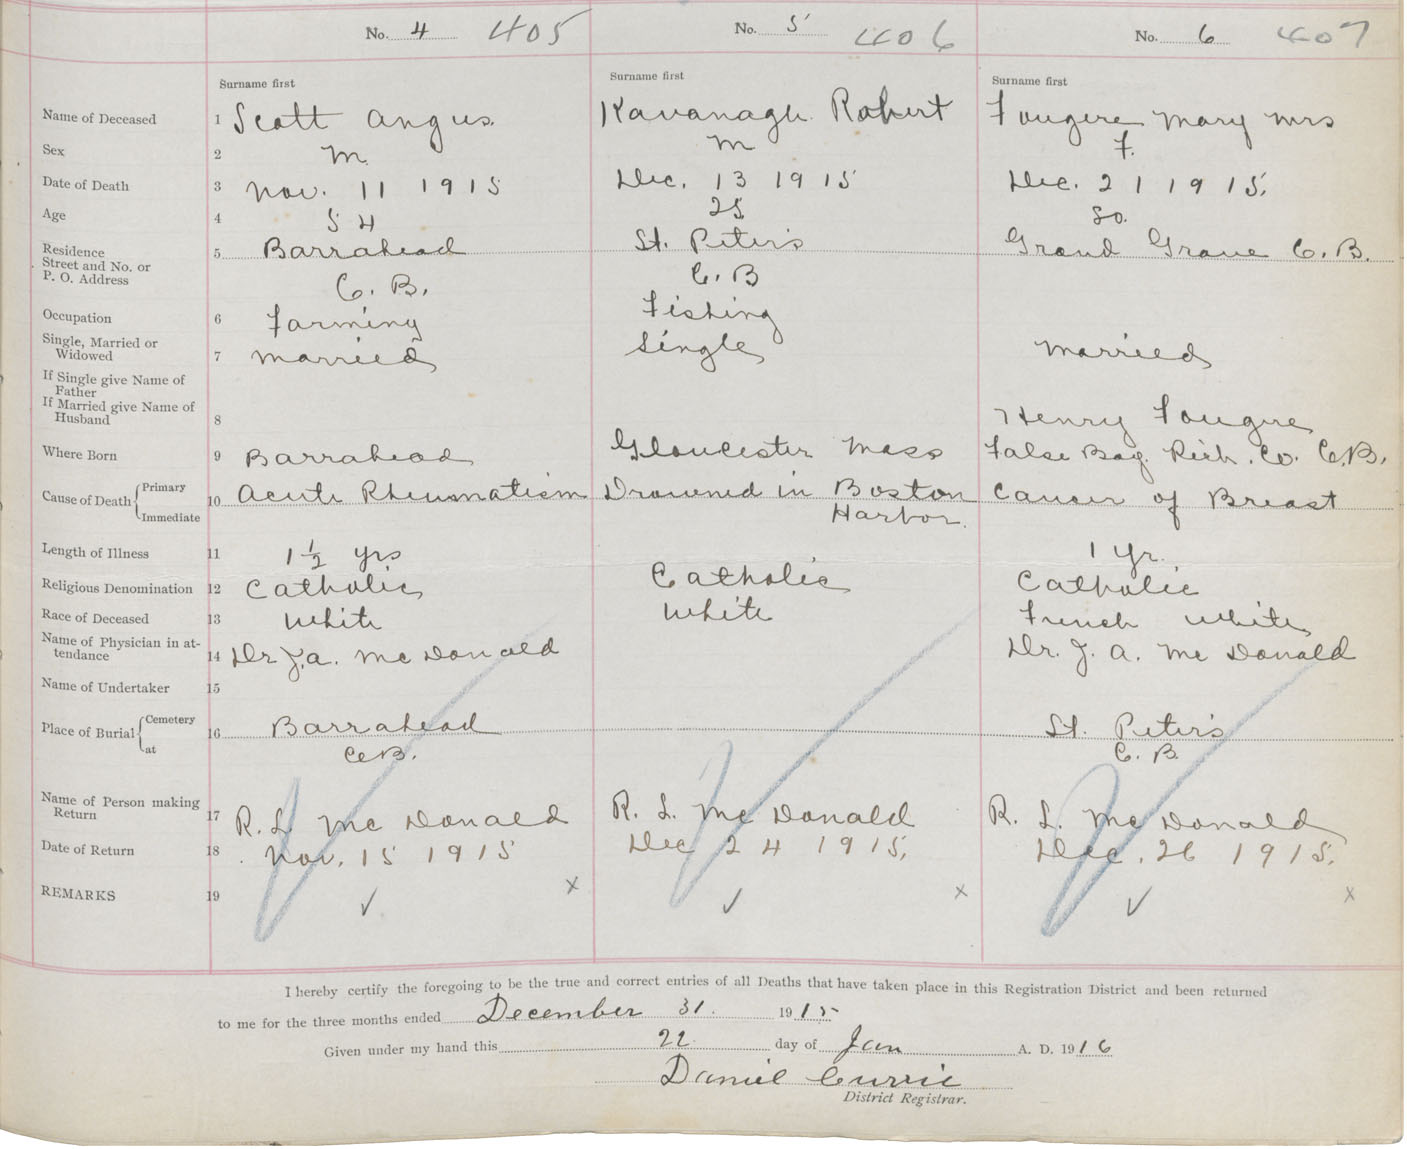 No. 4 405 No. 5 406 No. 6 407
Surname first Surname first Surname first
Name of Deceased 1 Scott Angus. Kavanagh Robert Fougere Mary Mrs
Sex 2 M. M F.
Date of Death 3 Nov. 11 1915 Dec. 13 1915 Dec. 21 1915.
Age 4 54 25 50.
Residence
Street and No. or
P. O. Address 5 Barrahead St. Peter's Grand Grave C. B.
C. B. C. B
Occupation 6 Farming Fishing
Single, Married or
Widowed 7 Married Single Married
If Single give Name of
Father
If Married give Name of
Husband 8 Henry Fougere
Where Born 9 Barrahead Gloucester Mass False Bay Rich. Co. C.B.
Cause of Death { Primary
Immediate 10 Acute Rheumatism Drowned in Boston Cancer of Breast
Harbor.
Length of Illness 11 1½ yrs 1 Yr.
Religious Denomination 12 Catholic Catholic Catholic
Race of Deceased 13 White White French White
Name of Physician in at-
tendance 14 Dr J. A. McDonald Dr. J. A. McDonald
Name of Undertaker 15
Place of Burial { Cemetery
at 16 Barrahead St. Peter's
C.B. C. B.
Name of Person making
Return 17 R. L. McDonald R. L. McDonald R. L. McDonald
Date of Return 18 Nov. 15 1915 Dec 24 1915. Dec. 26 1915.
REMARKS 19 ✓ x ✓ x ✓ x
I hereby certify the foregoing to be the true and correct entries of all Deaths that have taken place in this Registration District and been returned
to me for the three months ended December 31. 1915
Given under my hand this 22 day of Jan A. D. 1916
Daniel Currie
District Registrar.